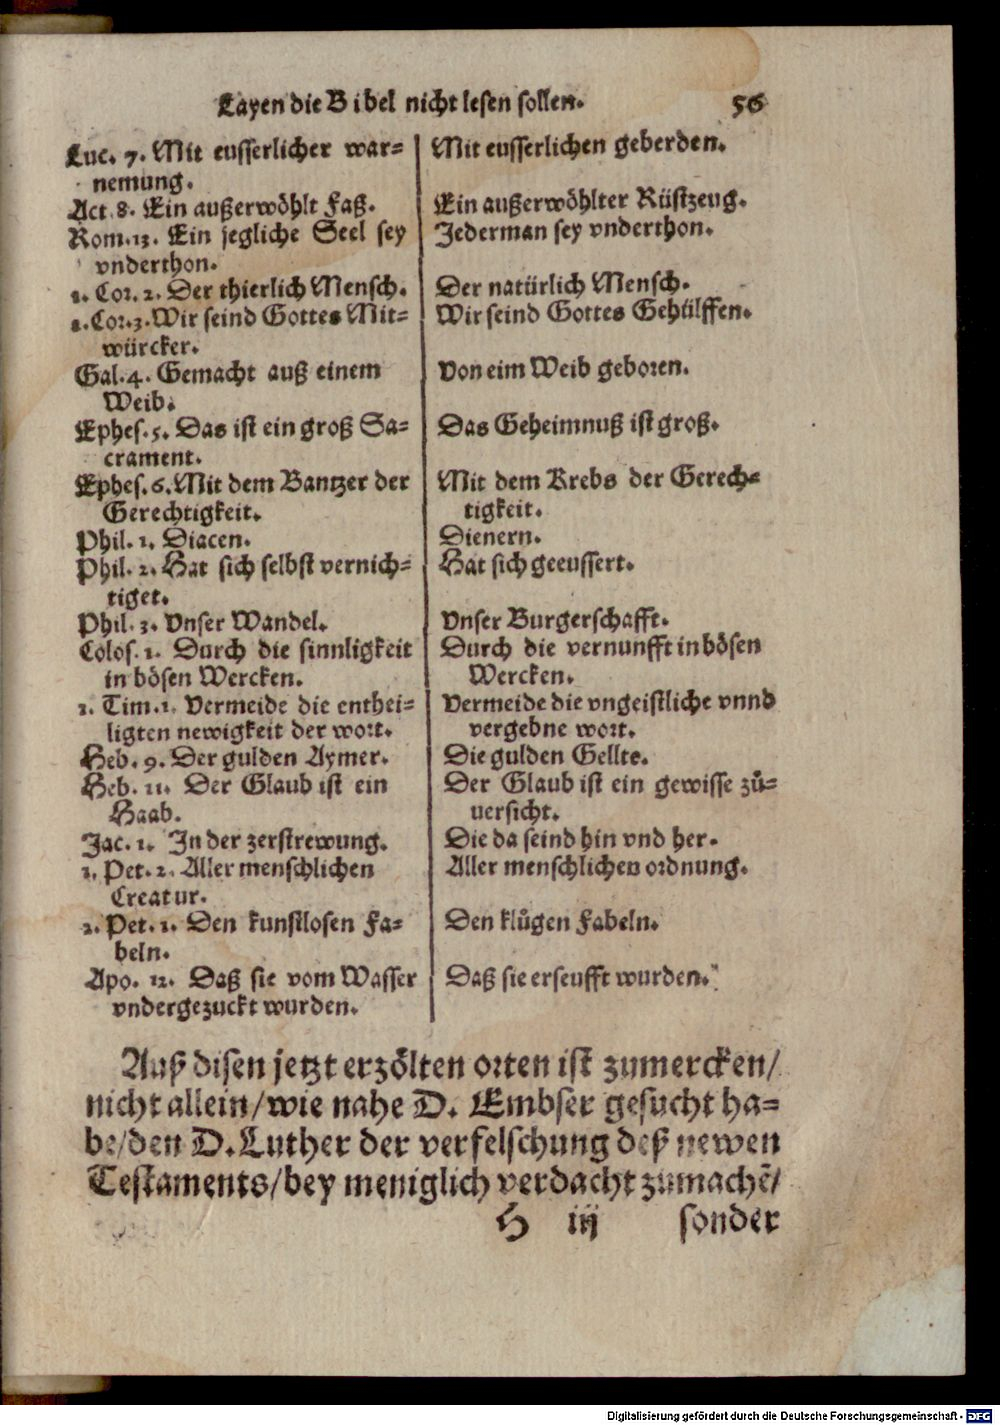 Layen die Bibel nicht lesen sollen. 56
Luc. 7. Mit eusserlicher war-
nemung.
Mit eusserlichen geberden.
Act. 8. Ein außerwöhlt Faß.
Ein außerwöhlter Rüstzeug.
Rom. 13. Ein jegliche Seel sey
vnderthon.
Jederman sey vnderthon.
1. Cor. 2. Der thierlich Mensch.
Der natürlich Mensch.
1. Cor. 3. Wir seind Gottes Mit-
würcker.
Wir seind Gottes Gehülffen.
Gal. 4. Gemacht auß einem
Weib.
Von eim Weib geboren.
Ephes. 5. Das ist ein groß Sa-
crament.
Das Geheimnuß ist groß.
Ephes. 6. Mit dem Bantzer der
Gerechtigkeit.
Mit dem Krebs der Gerech-
tigkeit.
Phil. 1. Diacen.
Dienern.
Phil. 2. Hat sich selbst vernich-
tiget.
Hat sich geeussert.
Phil. 3. Vnser Wandel.
Vnser Burgerschafft.
Colos. 1. Durch die sinnligkeit
in bösen Wercken.
Durch die vernunfft in bösen
Wercken.
1. Tim. 1. Vermeide die enthei-
ligten newigkeit der wort.
Vermeide die vngeistliche vnnd
vergebne wort.
Heb. 9. Der gulden Aymer.
Die gulden Gellte.
Heb. 11. Der Glaub ist ein
Haab.
Der Glaub ist ein gewisse zů-
uersicht.
Jac. 1. In der zerstrewung.
Die da seind hin vnd her.
1. Pet. 2. Aller menschlichen
Creatur.
Aller menschlichen ordnung.
2. Pet. 1. Den kunstlosen Fa-
beln.
Den klůgen Fabeln.
Apo. 12. Daß sie vom Wasser
vndergezuckt wurden.
Daß sie erseufft wurden.
Auß disen jetzt erzölten orten ist zumercken/
nicht allein/wie nahe D. Embser gesucht ha-
be/den D. Luther der verfelschung deß newen
Testaments/bey meniglich verdacht zumachẽ/
H iij sonder
Digitalisierung gefördert durch die Deutsche Forschungsgemeinschaft - DFG